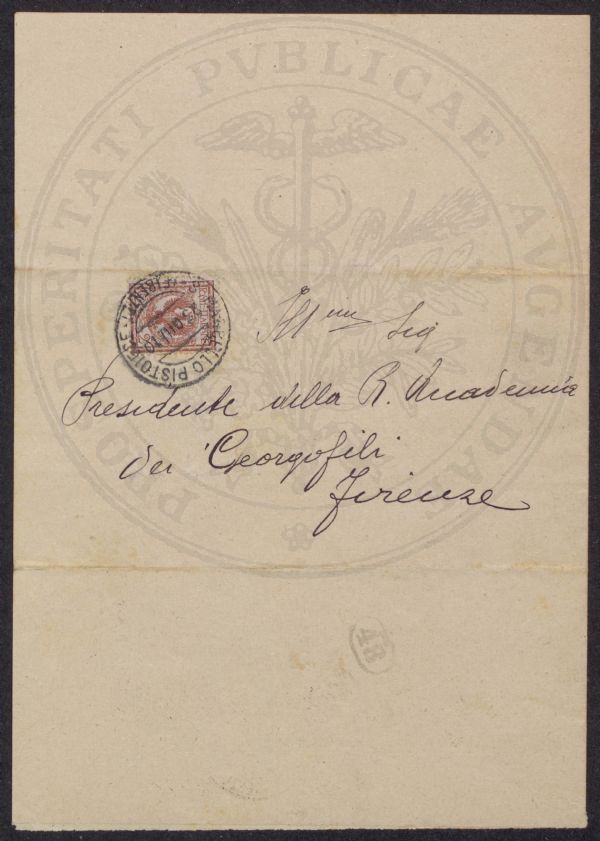 PROSPERITATI PVBLICAE AVGENDAE
PISTOIESE
Ill.mo Sig
Presidente della R. Accademia
dei Georgofili
Firenze
48